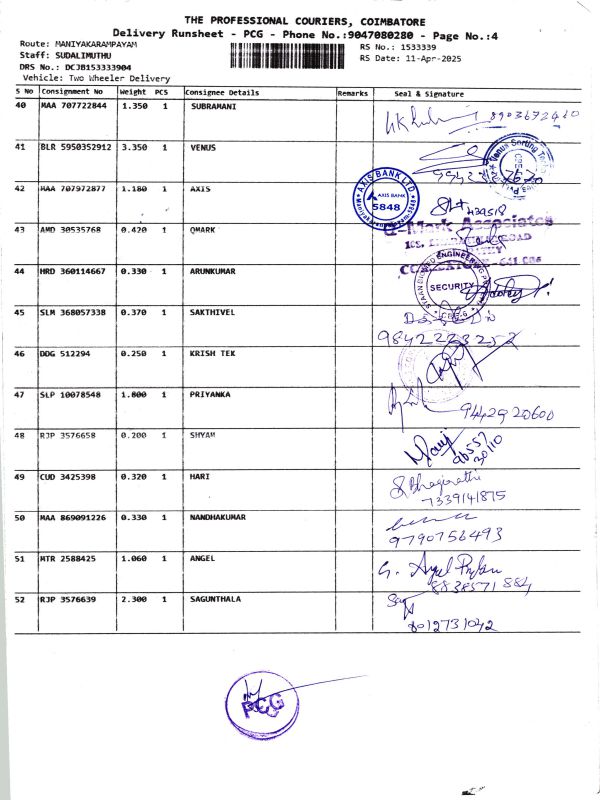 THE PROFESSIONAL COURIERS, COIMBATORE
Delivery Runsheet - PCG - Phone No.:9047080280 - Page No.:4
Route: MANIYAKARAMPAYAM
RS No.: 1533339
Staff: SUDALIMUTHU
RS Date: 11-Apr-2025
DRS No.: DCJB153333904
Vehicle: Two Wheeler Delivery
S No Consignment No Weight PCS Consignee Details Remarks Seal & Signature
40 MAA 707722844 1.350 1 SUBRAMANI 8903672420
41 BLR 5950352912 3.350 1 VENUS
42 MAA 707972877 1.180 1 AXIS AXIS BANK LTD. AXIS BANK 5848 439518
43 AMD 30535768 0.420 1 QMARK Q-Mark Associates
ROAD
44 HRD 360114667 0.330 1 ARUNKUMAR SECURITY
45 SLM 368057338 0.370 1 SAKTHIVEL
9842223252
46 DDG 512294 0.250 1 KRISH TEK
47 SLP 10078548 1.800 1 PRIYANKA 9442920600
48 RJP 3576658 0.200 1 SHYAM 96557 30110
49 CUD 3425398 0.320 1 HARI Bhagirathi
7339141875
50 MAA 869091226 0.330 1 NANDHAKUMAR
9790756493
51 MTR 2588425 1.060 1 ANGEL G. Angel
8838571884
52 RJP 3576639 2.300 1 SAGUNTHALA Sag
8012731042
PCG